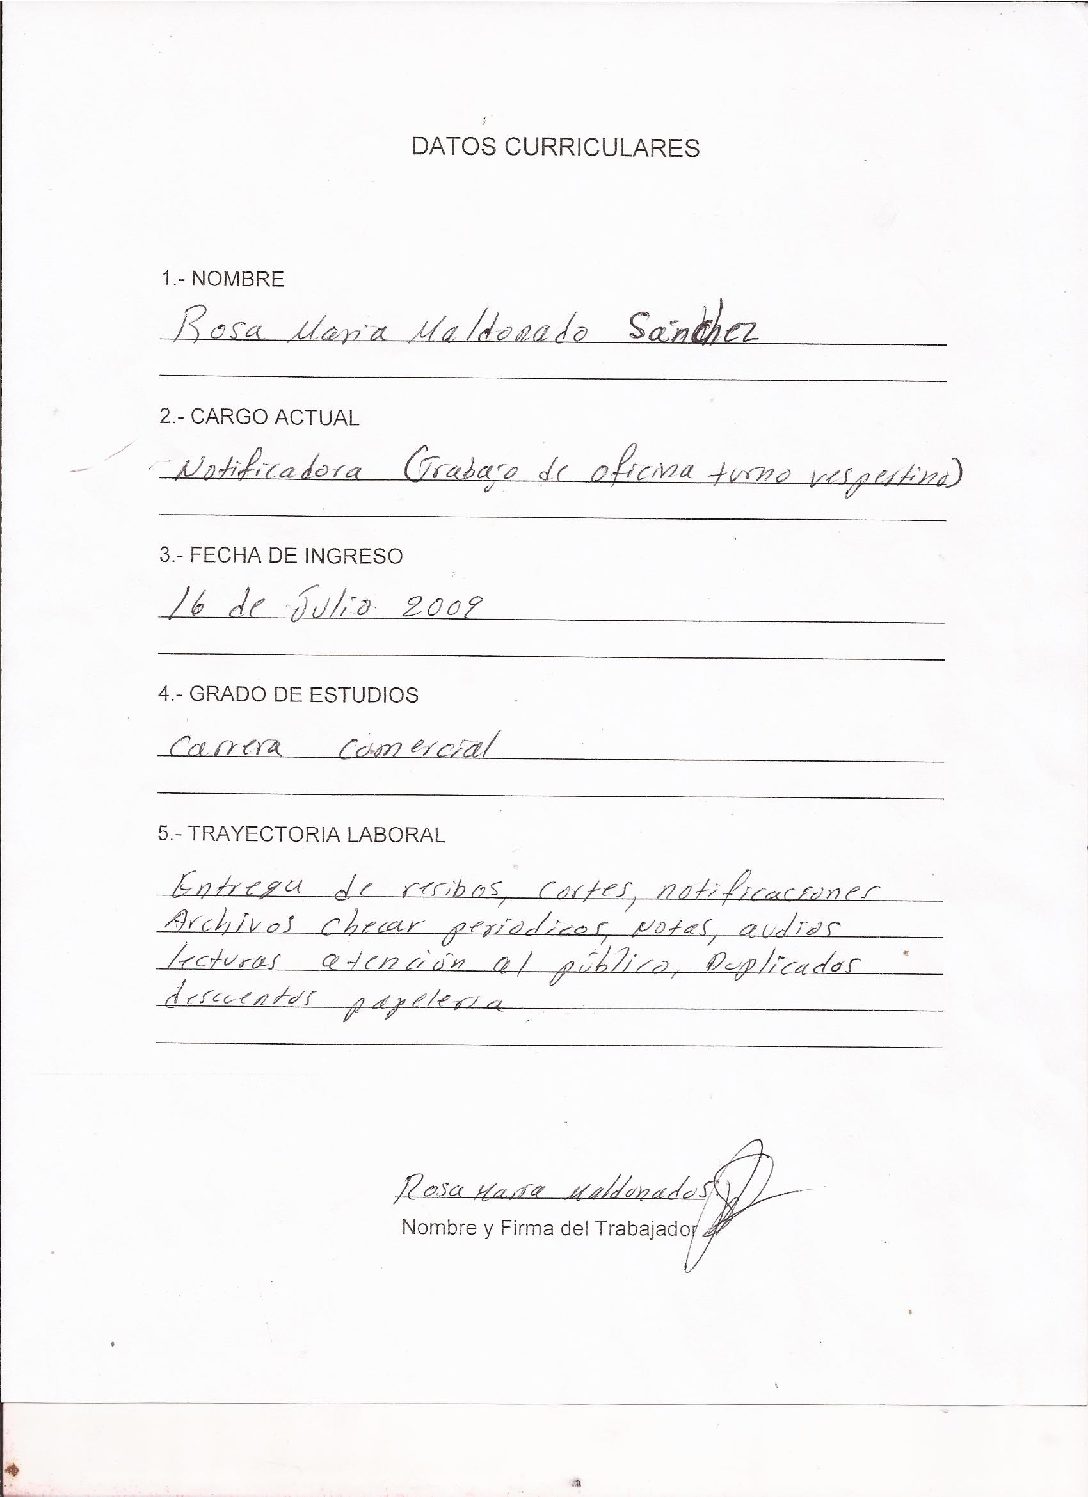 DATOS CURRICULARES
1.- NOMBRE
Rosa Maria Maldonado Sánchez
2.- CARGO ACTUAL
Notificadora (Trabajo de oficina turno vespertino)
3.- FECHA DE INGRESO
16 de Julio 2009
4.- GRADO DE ESTUDIOS
Carrera Comercial
5.- TRAYECTORIA LABORAL
Entrega de recibos, cortes, notificaciones
Archivos checar periodicos, Notas, audios
lecturas atención al público, Duplicados
descuentos papeleria
Rosa Maria Maldonado S.
Nombre y Firma del Trabajador